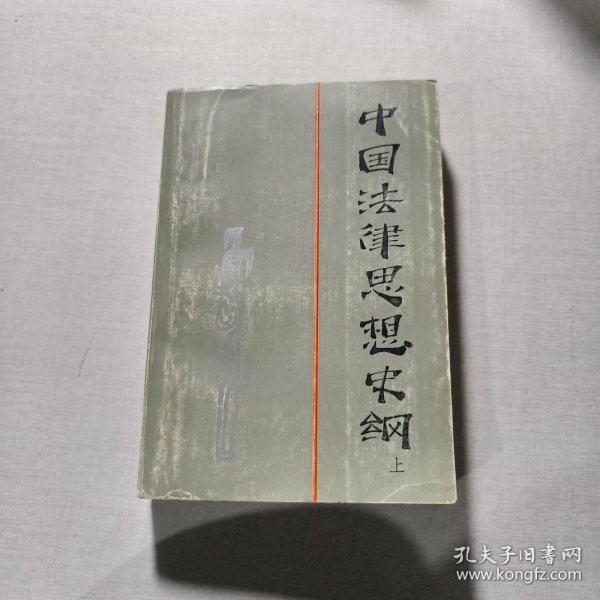 中国法律思想史纲
上
孔夫子旧書网
www.kongfz.com